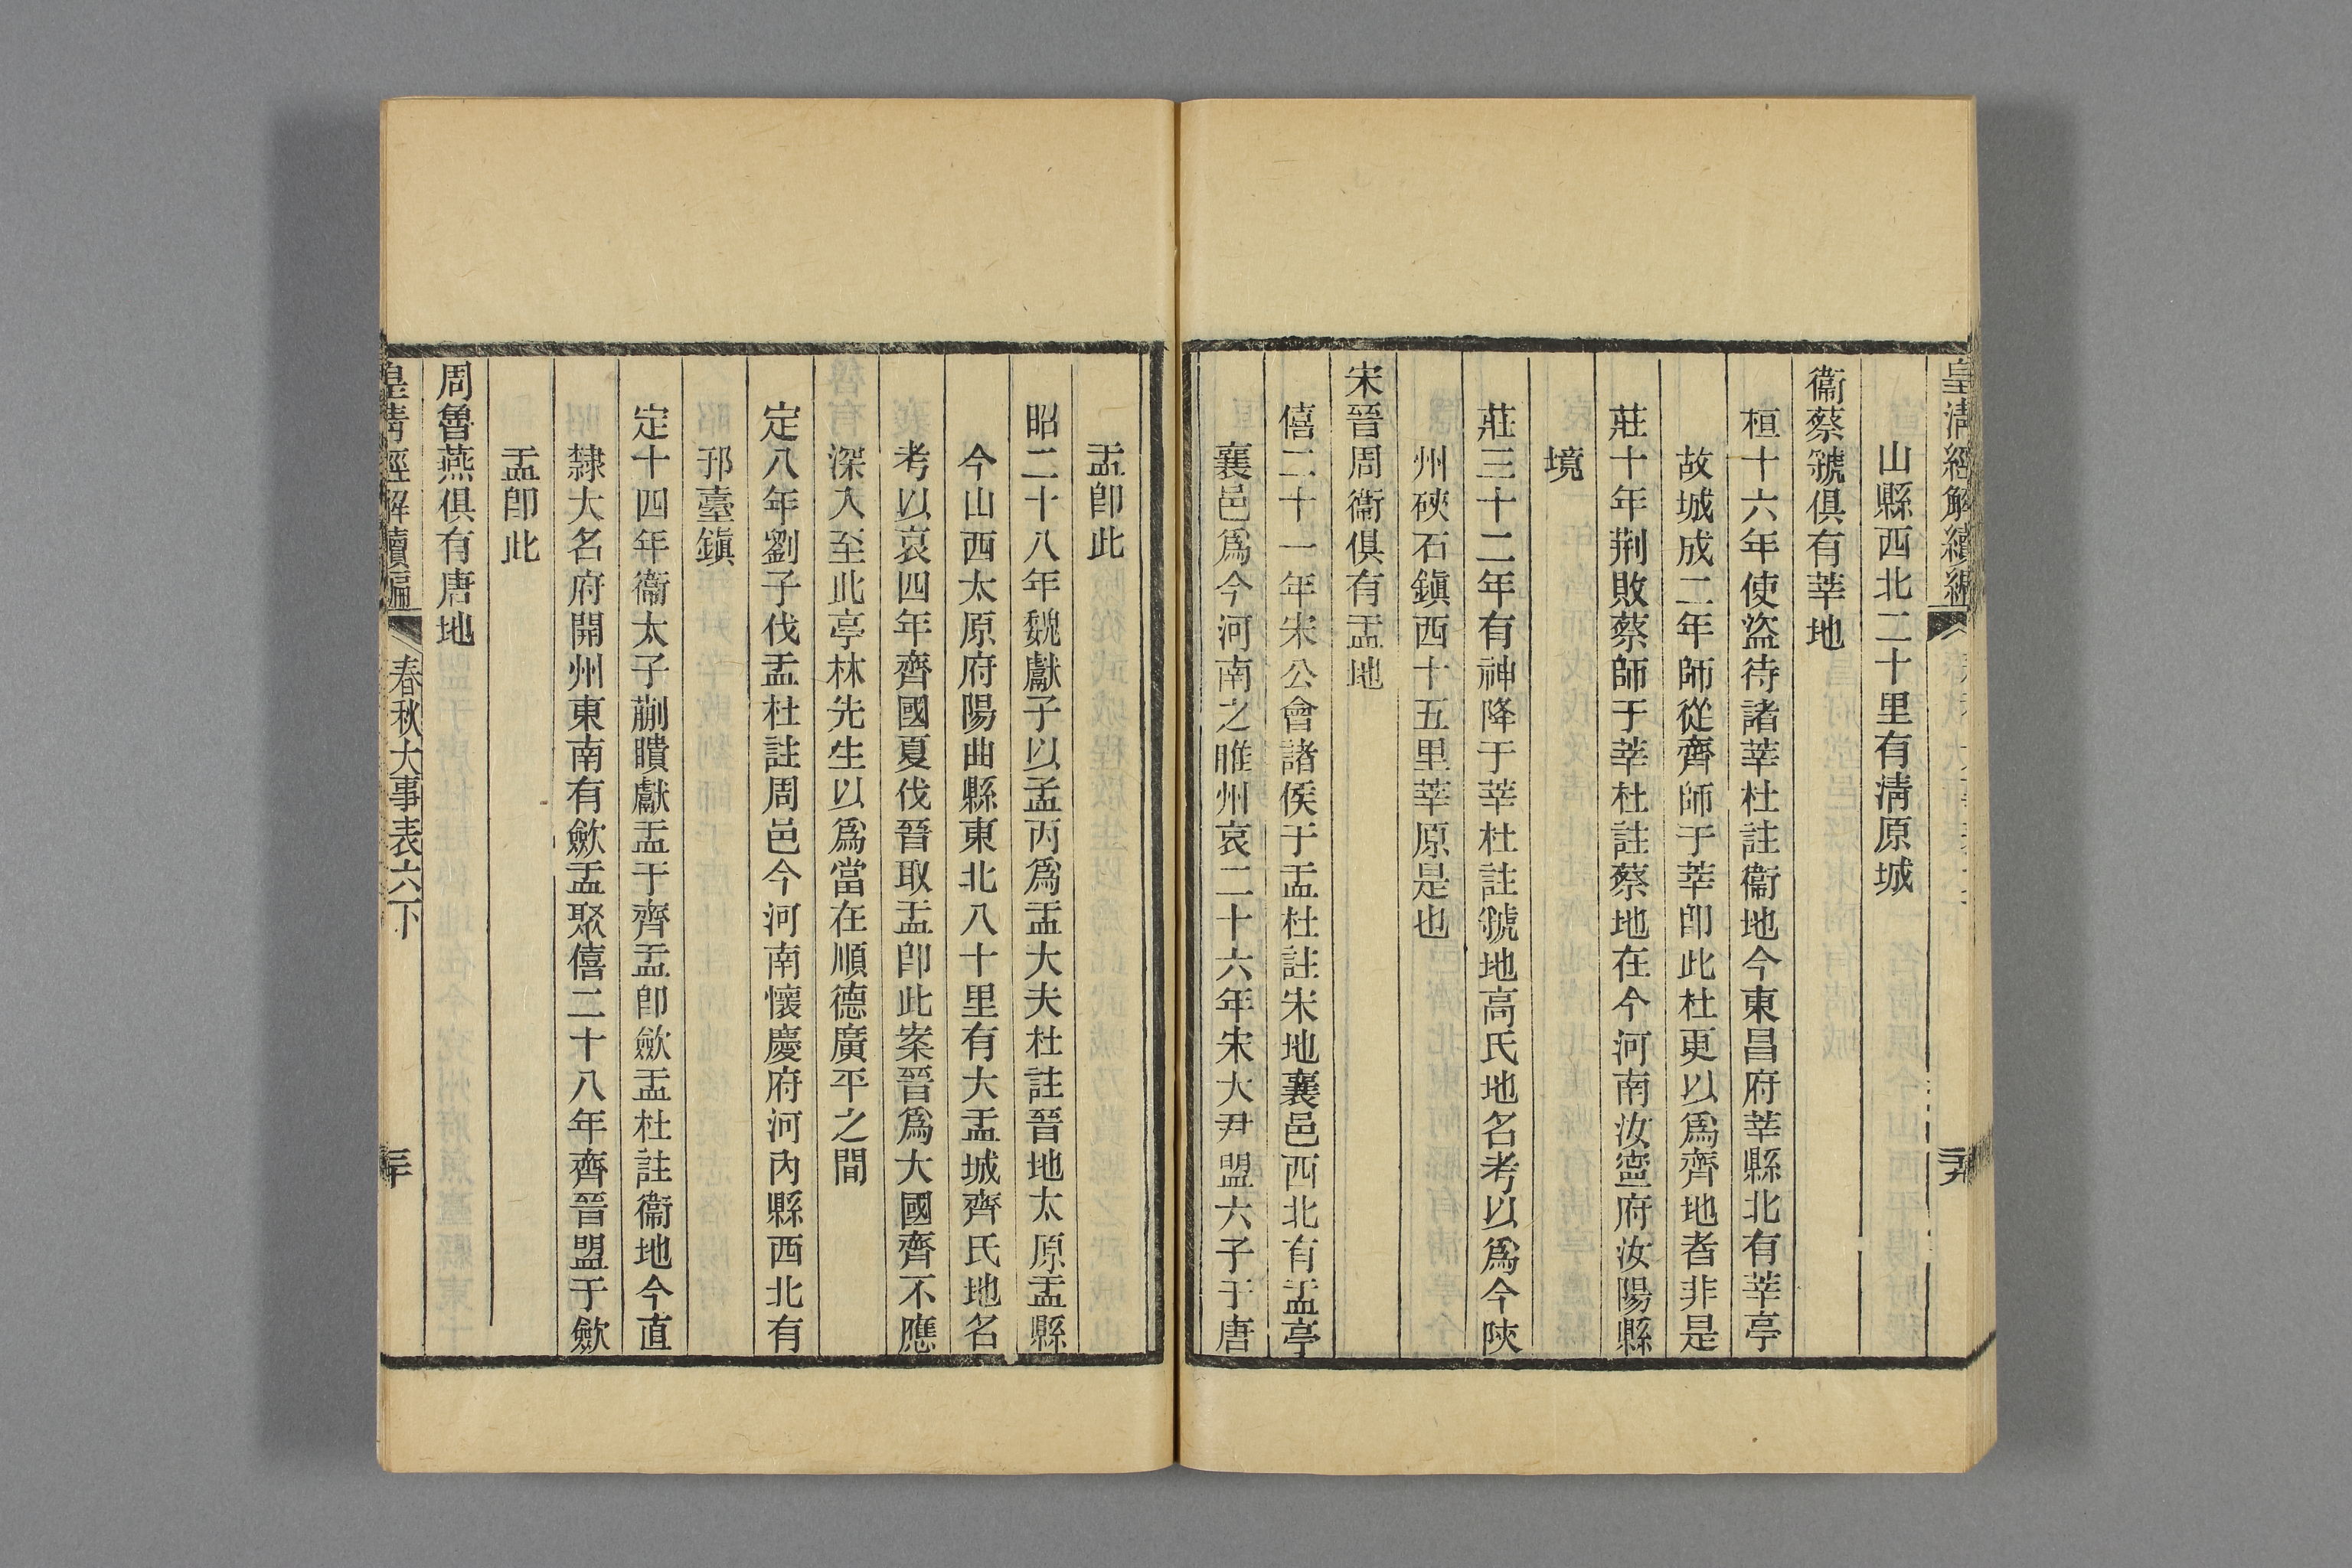 皇淸經解續編
山縣西北二十里有淸原城
衞蔡虢俱有莘地
桓十六年使盜待諸莘杜註衞地今東昌府莘縣北有莘亭
故城成二年師從齊師于莘卽此杜更以爲齊地者非是
莊十年荆敗蔡師于莘杜註蔡地在今河南汝寧府汝陽縣
境
莊三十二年有神降于莘杜註虢地高氏地名考以爲今陝
州硤石鎭西十五里莘原是也
宋晉周衞俱有盂地
僖二十一年宋公會諸侯于盂杜註宋地襄邑西北有盂亭
襄邑爲今河南之睢州哀二十六年宋大尹盟六子于唐
盂卽此
昭二十八年魏獻子以孟丙爲盂大夫杜註晉地太原盂縣
今山西太原府陽曲縣東北八十里有大盂城齊氏地名
考以哀四年齊國夏伐晉取盂卽此案晉爲大國齊不應
深入至此亭林先生以爲當在順德廣平之間
定八年劉子伐盂杜註周邑今河南懷慶府河內縣西北有
邘臺鎭
定十四年衞太子蒯聵獻盂于齊盂卽斂盂杜註衞地今直
隸大名府開州東南有斂盂聚僖二十八年齊晉盟于斂
盂卽此
周魯燕俱有唐地
皇淸經解續編
春秋大事表六下
三十